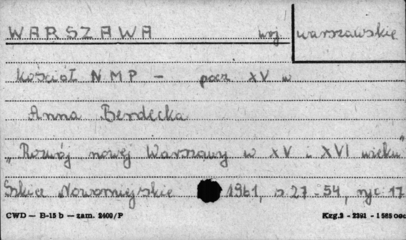 WARSZAWA woj. warszawskie
Kościół NMP – pocz XV w
Anna Berdecka
„Rozwój nowej Warszawy w XV i XVI wieku"
Szkice Nowomiejskie 1961, s 27-54, ryc 17
CWD — B-15 b — zam. 2400/P